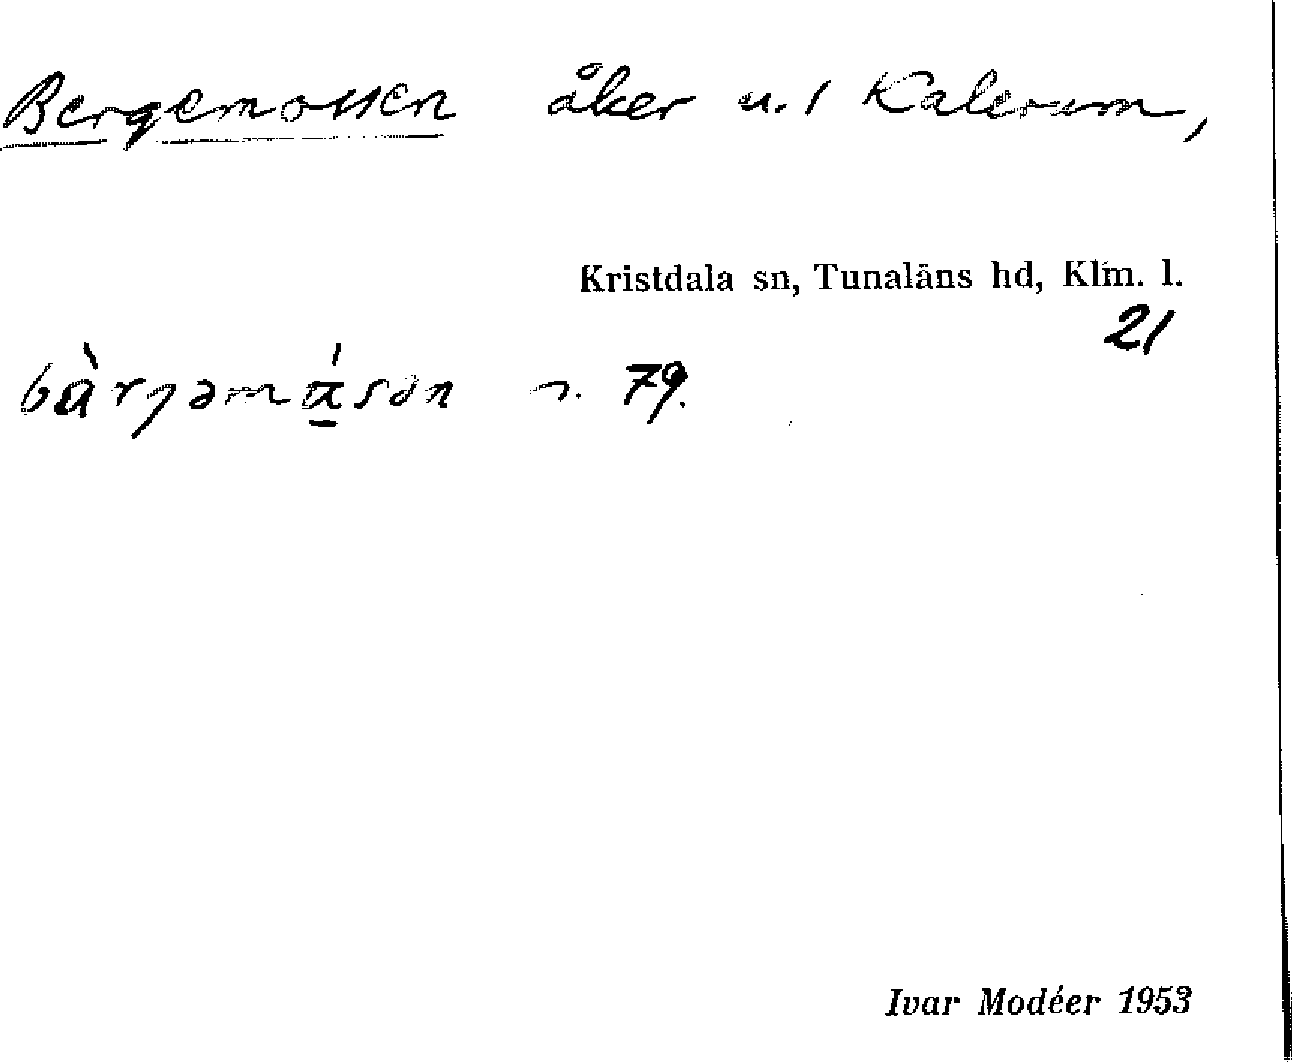 Bergemossen åker u. / Kalerum,
Kristdala sn, Tunaläns hd, Klm. l.
21
n. 79.
Ivar Modéer 1953